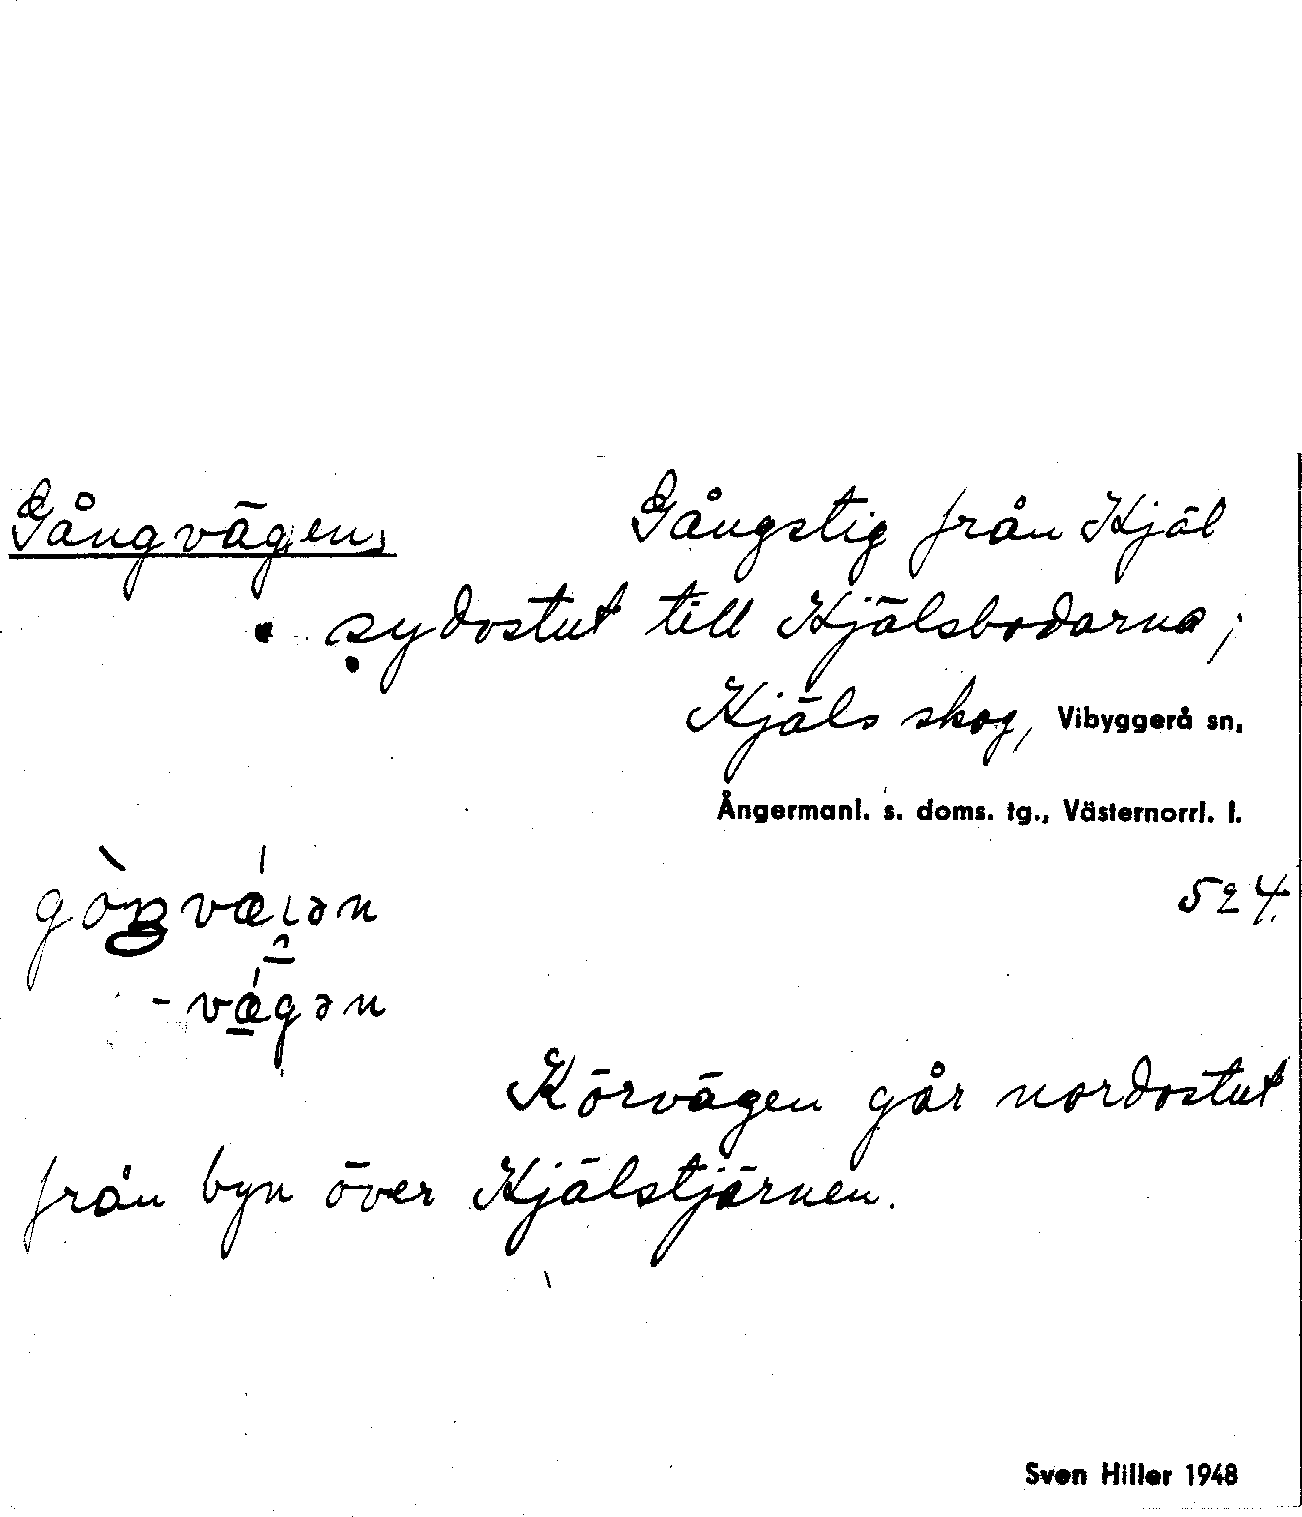 Gångvägen, Gångstig från Kjäl
sydostut till Kjälsbodarna;
Kjäls skog, Vibyggerå sn,
Ångermanl. s. doms. tg., Västernorrl. l.
524.
-vǽgən
Körvägen går nordostut
från byn över Kjälstjärnen.
Sven Hiller 1948